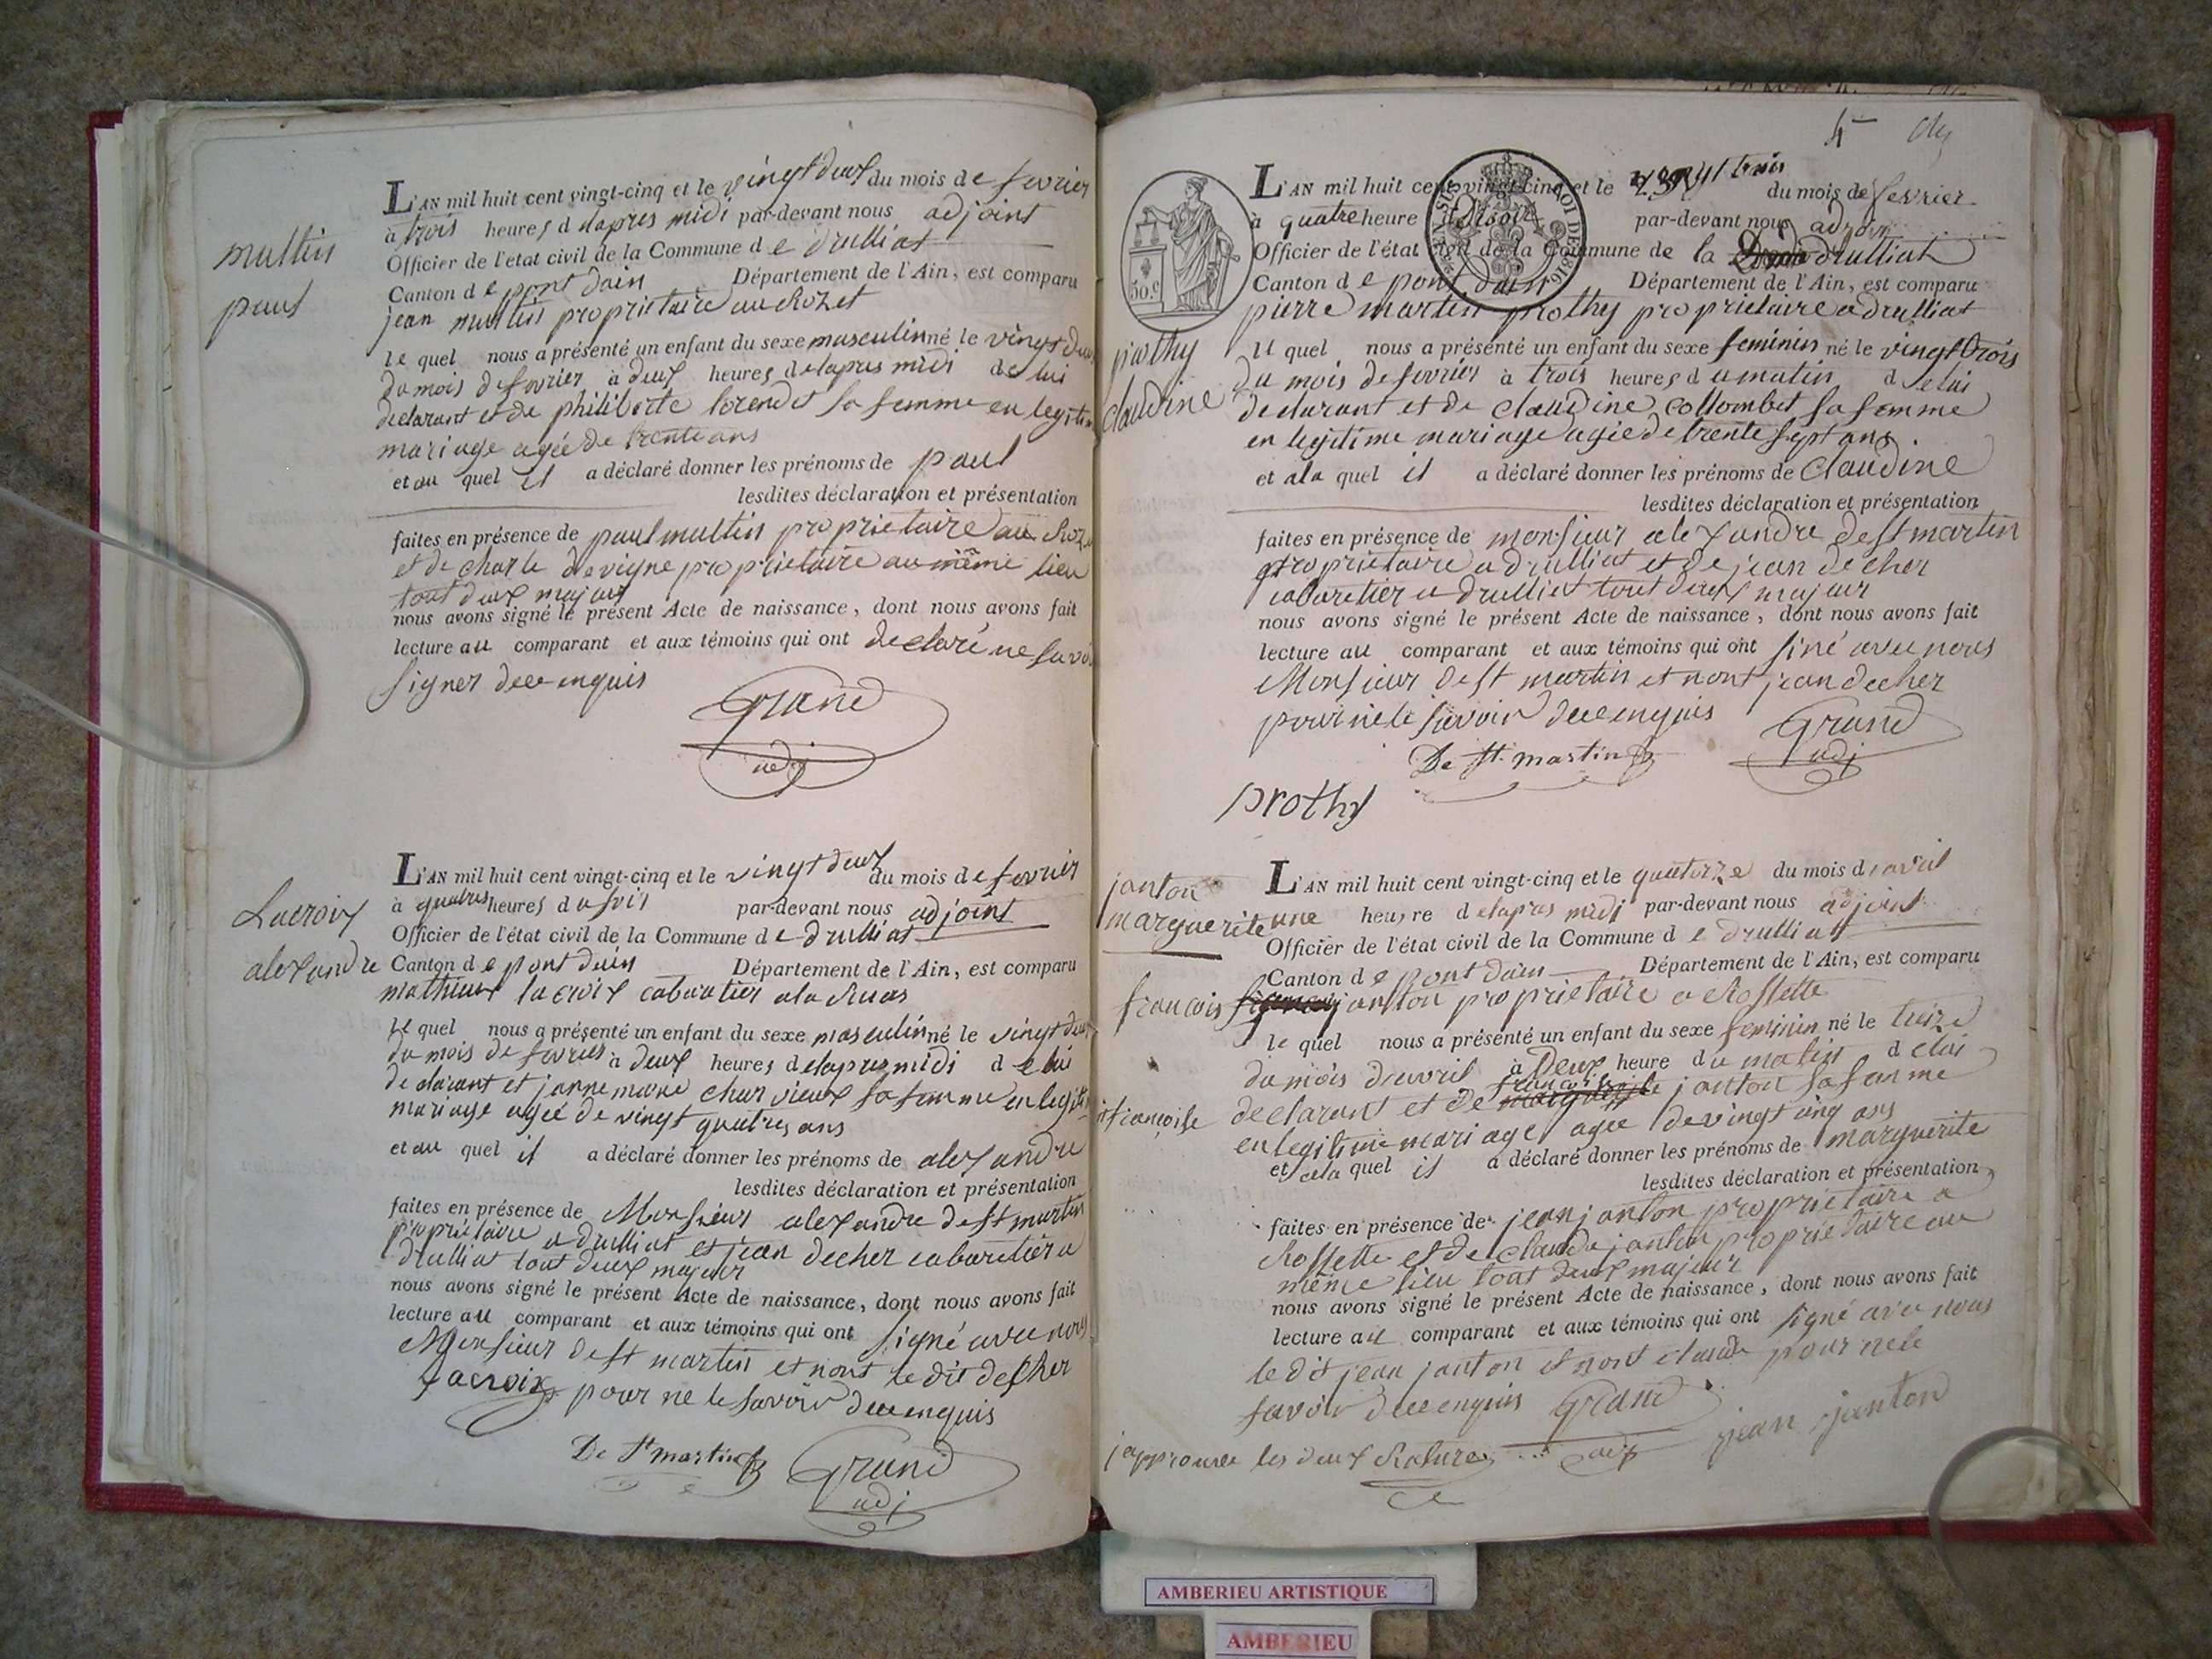 multin
paul
L'AN mil huit cent vingt-cinq et le vingt deux du mois de fevrier
à trois heures d elapres midi par-devant nous adjoint
Officier de l'état civil de la Commune d e drulliat
Canton d e pont dain Département de l'Ain, est comparu
jean multin proprietaire au Rozet
le quel nous a présenté un enfant du sexe masculin né le vingt deux
du mois de fevrier à deux heures delapres midi de lui
declarant et de philiberte lorendet sa femme en legitim
mariage agée de trente ans
et au quel il a déclaré donner les prénoms de paul
lesdites déclaration et présentation
faites en présence de paul multin proprietaire au Roze
et de charle devigne proprietaire au même lieu
tout deux majeur
nous avons signé le présent Acte de naissance, dont nous avons fait
lecture au comparant et aux témoins qui ont declaré ne savoi
signer dece enquis
Grand
adj
Lacroix
alexandre
L'AN mil huit cent vingt-cinq et le vingt deux du mois de fevrier
à quatres heures d u soir par-devant nous adjoint
Officier de l'état civil de la Commune d e drulliat
Canton d e pont dain Département de l'Ain, est comparu
mathieux lacroix cabaretier ala Ruas
le quel nous a présenté un enfant du sexe masculin né le vingt deux
du mois de fevrier à deux heures delapres midi d e lui
declarant et janne marie charvieux sa femme en legiti
mariage agée de vingt quatres ans
et au quel il a déclaré donner les prénoms de alexandre
lesdites déclaration et présentation
faites en présence de Monsieur alexandre de st martin
proprietaire a drulliat et jean decher cabaretier a
drulliat tout deux majeur
nous avons signé le présent Acte de naissance, dont nous avons fait
lecture au comparant et aux témoins qui ont signé avec nous
Monsieur de st martin et nont le dit decher
Lacroix pour ne le savoir dece enquis
De St martin
Grand
adj
4
L'AN mil huit cent vingt-cinq et le vingt trois du mois de fevrier
à quatre heure du soir par-devant nous adjoin
Officier de l'état civil de la Commune de la drulliat
Canton d e pont dain Département de l'Ain, est comparu
50.c
ROI DE 1816
pierre martin prothy proprietaire a drulliat
prothy
claudine
le quel nous a présenté un enfant du sexe feminin né le vingt trois
du mois de fevrier à trois heures d u matin d e lui
declarant et de claudine collombet sa femme
en legitime mariage agée de trente sept ans
et ala quel il a déclaré donner les prénoms de claudine
lesdites déclaration et présentation
faites en présence de monsieur alexandre de st martin
proprietaire a drulliat et de jean decher
cabaretier a drulliat tout deux majeur
nous avons signé le présent Acte de naissance, dont nous avons fait
lecture au comparant et aux témoins qui ont siné avec nous
Monsieur de st martin et nont jean decher
pour ne le savoir dece enquis
Grand
adj
De St. martin
prothy
janton
marguerite
L'AN mil huit cent vingt-cinq et le quatorze du mois d avril
une heure d elapres midi par-devant nous adjoint
Officier de l'état civil de la Commune d e drulliat
Canton d e pont dain Département de l'Ain, est comparu
francois janton proprietaire a Rossette
le quel nous a présenté un enfant du sexe feminin né le treize
du mois d avril à Deux heure du matin d elui
francoise declarant et de janton sa femme
en legitime mariage agee de vingt cinq ans
et ala quel il a déclaré donner les prénoms de marguerite
lesdites déclaration et présentation
faites en présence de jean janton proprietaire a
Rossette et de claude janton proprietaire au
même lieu tout deux majeur
nous avons signé le présent Acte de naissance, dont nous avons fait
lecture au comparant et aux témoins qui ont signé avec nous
le dit jean janton et nont claude pour ne le
savoir dece enquis
Grand
adj
jean janton
japprouvee les deux Ratures
AMBERIEU ARTISTIQUE
AMBERIEU